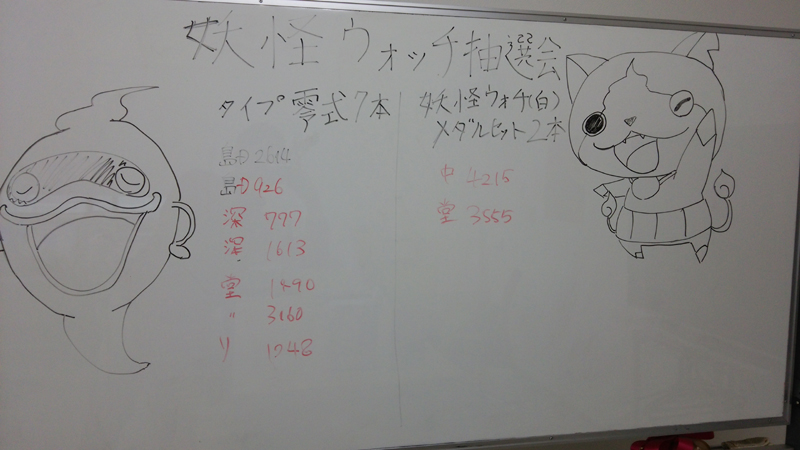 妖怪ウォッチ抽選会
タイプ零式7本
島D 2614
島D 926
深 777
深 1613
堂 1490
〃 3160
リ 1248
妖怪ウォチ(白)
メダルセット2本
中 4215
堂 3555